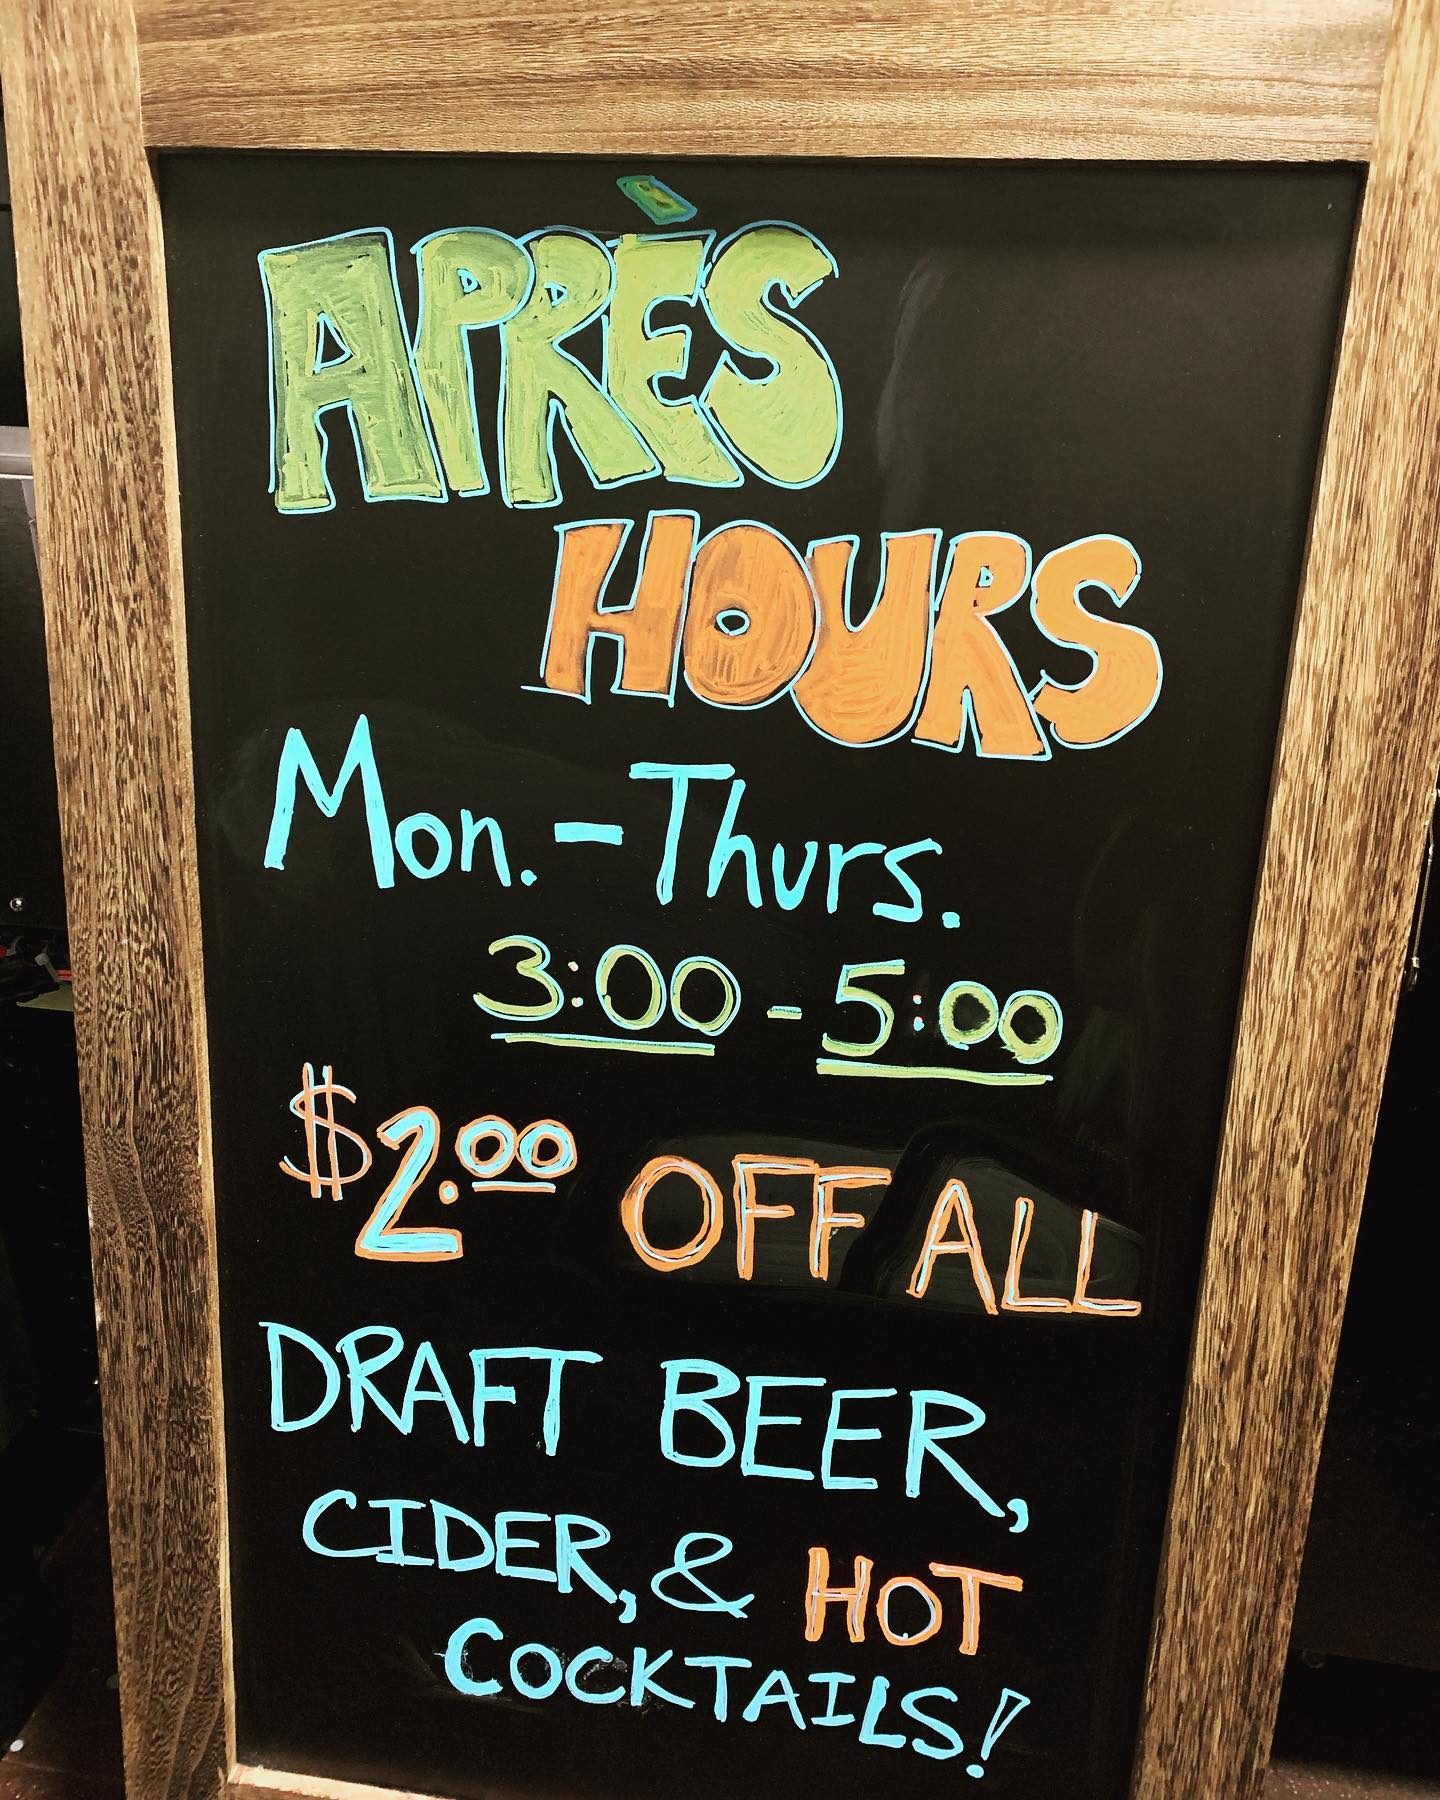 APRÈS
HOURS
Mon.-Thurs.
3:00 - 5:00
$2.00 OFF ALL
DRAFT BEER,
CIDER, & HOT
COCKTAILS!